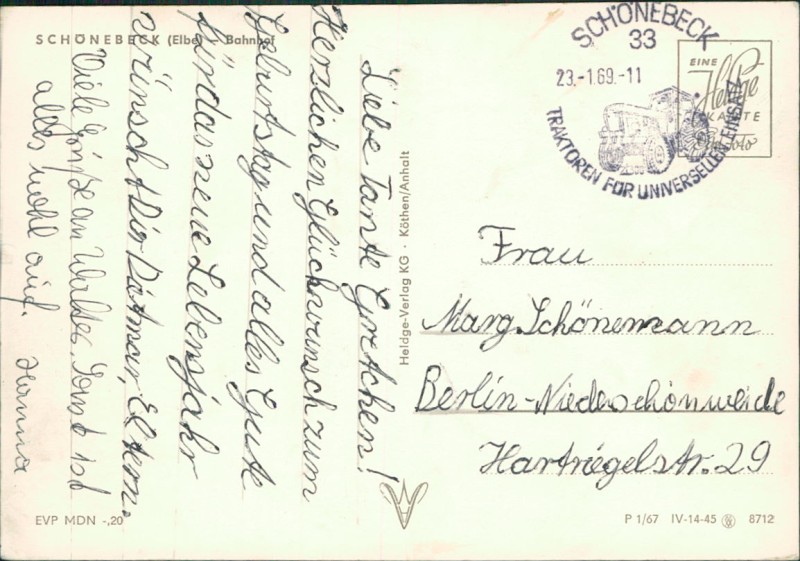 SCHÖNEBECK (Elbe) Bahnhof
Liebe Tante Gretchen!
Herzlichen Glückwunsch zum
Geburtstag und alles Gute
für das neue Lebensjahr
wünscht Dir Dietmar, Eltern.
Viele Grüße an Walter. Sonst ist
alles wohl auf. Hanna.
EVP MDN -,20
Heldge-Verlag KG · Köthen/Anhalt
SCHÖNEBECK
33
23.-1.69.-11
TRAKTOREN FÜR UNIVERSELLEN EINSATZ
EINE
Heldge
KARTE
Foto
Frau
Marg. Schönemann
Berlin-Niederschönweide
Hartriegelstr. 29
P 1/67 IV-14-45 8712